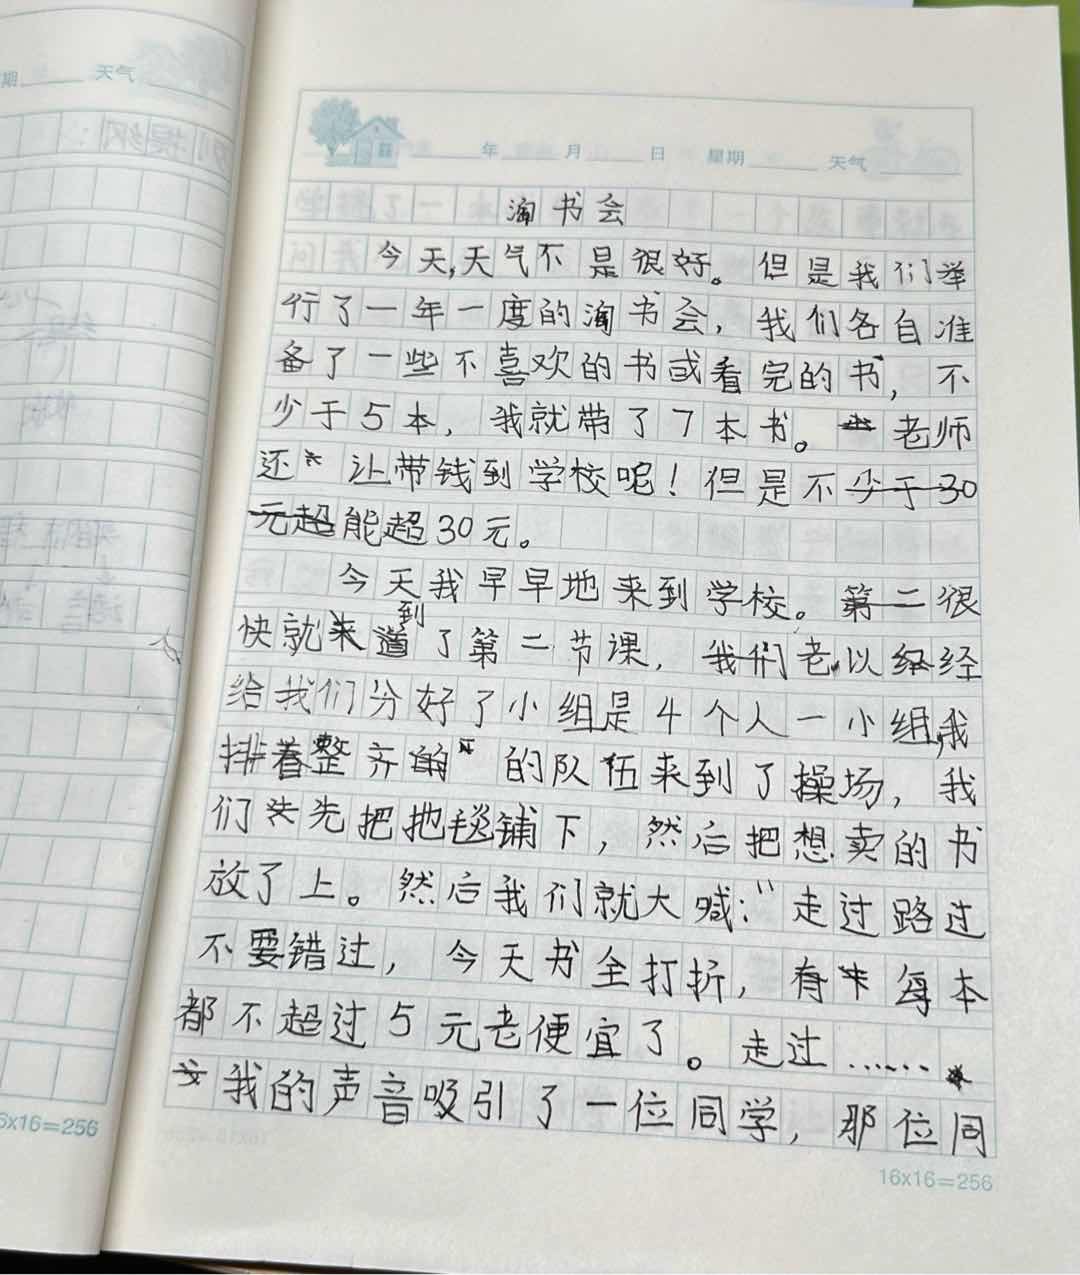 期 天气
列提纲：
年 月 日 星期 天气
淘书会
今天,天气不是很好。但是我们举
行了一年一度的淘书会，我们各自准
备了一些不喜欢的书或看完的书，不
少于5本，我就带了7本书。老师
还让带钱到学校呢！但是不少于30
元超能超30元。
今天我早早地来到学校。第二很
快就来道到了第二节课，我们老以经
给我们分好了小组是4个人一小组,我
排着整齐的队伍来到了操场，我
们先把地毯铺下，然后把想卖的书
放了上。然后我们就大喊：“走过路过
不要错过，今天书全打折，有每本
都不超过5元老便宜了。走过……
我的声音吸引了一位同学，那位同
16x16=256
16x16=256